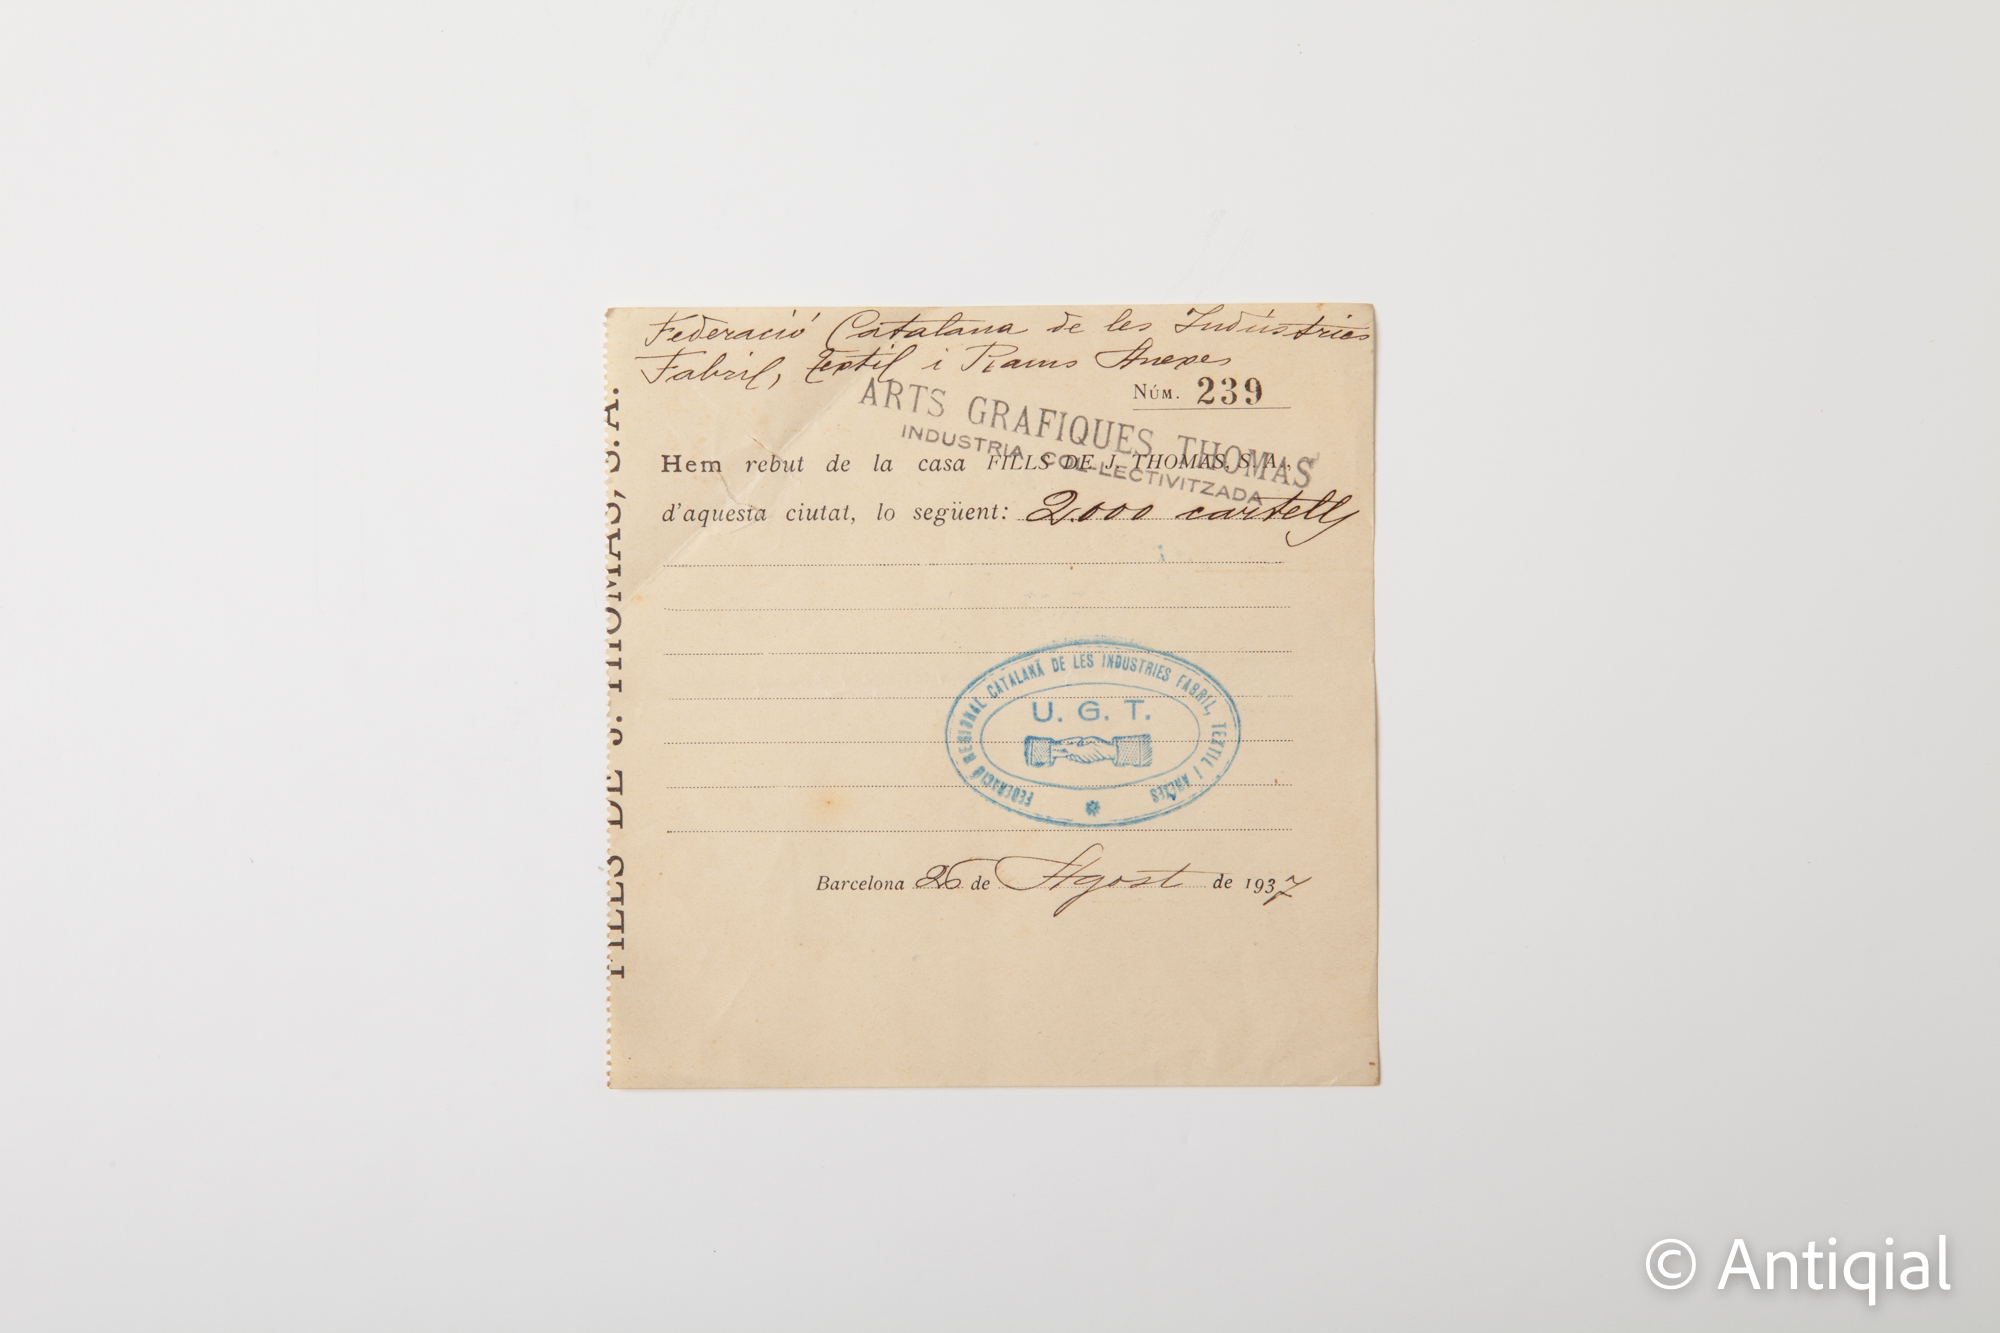 Federació Catalana de les Indústries
Fabril, Textil i Rams Anexes
NÚM. 239
ARTS GRAFIQUES THOMAS
INDUSTRIA COL·LECTIVITZADA
Hem rebut de la casa FILLS DE J. THOMAS, S. A.,
d'aquesta ciutat, lo següent: 2.000 cartells
FEDERACIÓ REGIONAL CATALANA DE LES INDUSTRIES FABRIL, TEXTIL I ANEXES
U. G. T.
Barcelona 26 de Agost de 1937
FILLS DE J. THOMAS, S. A.
© Antiqial